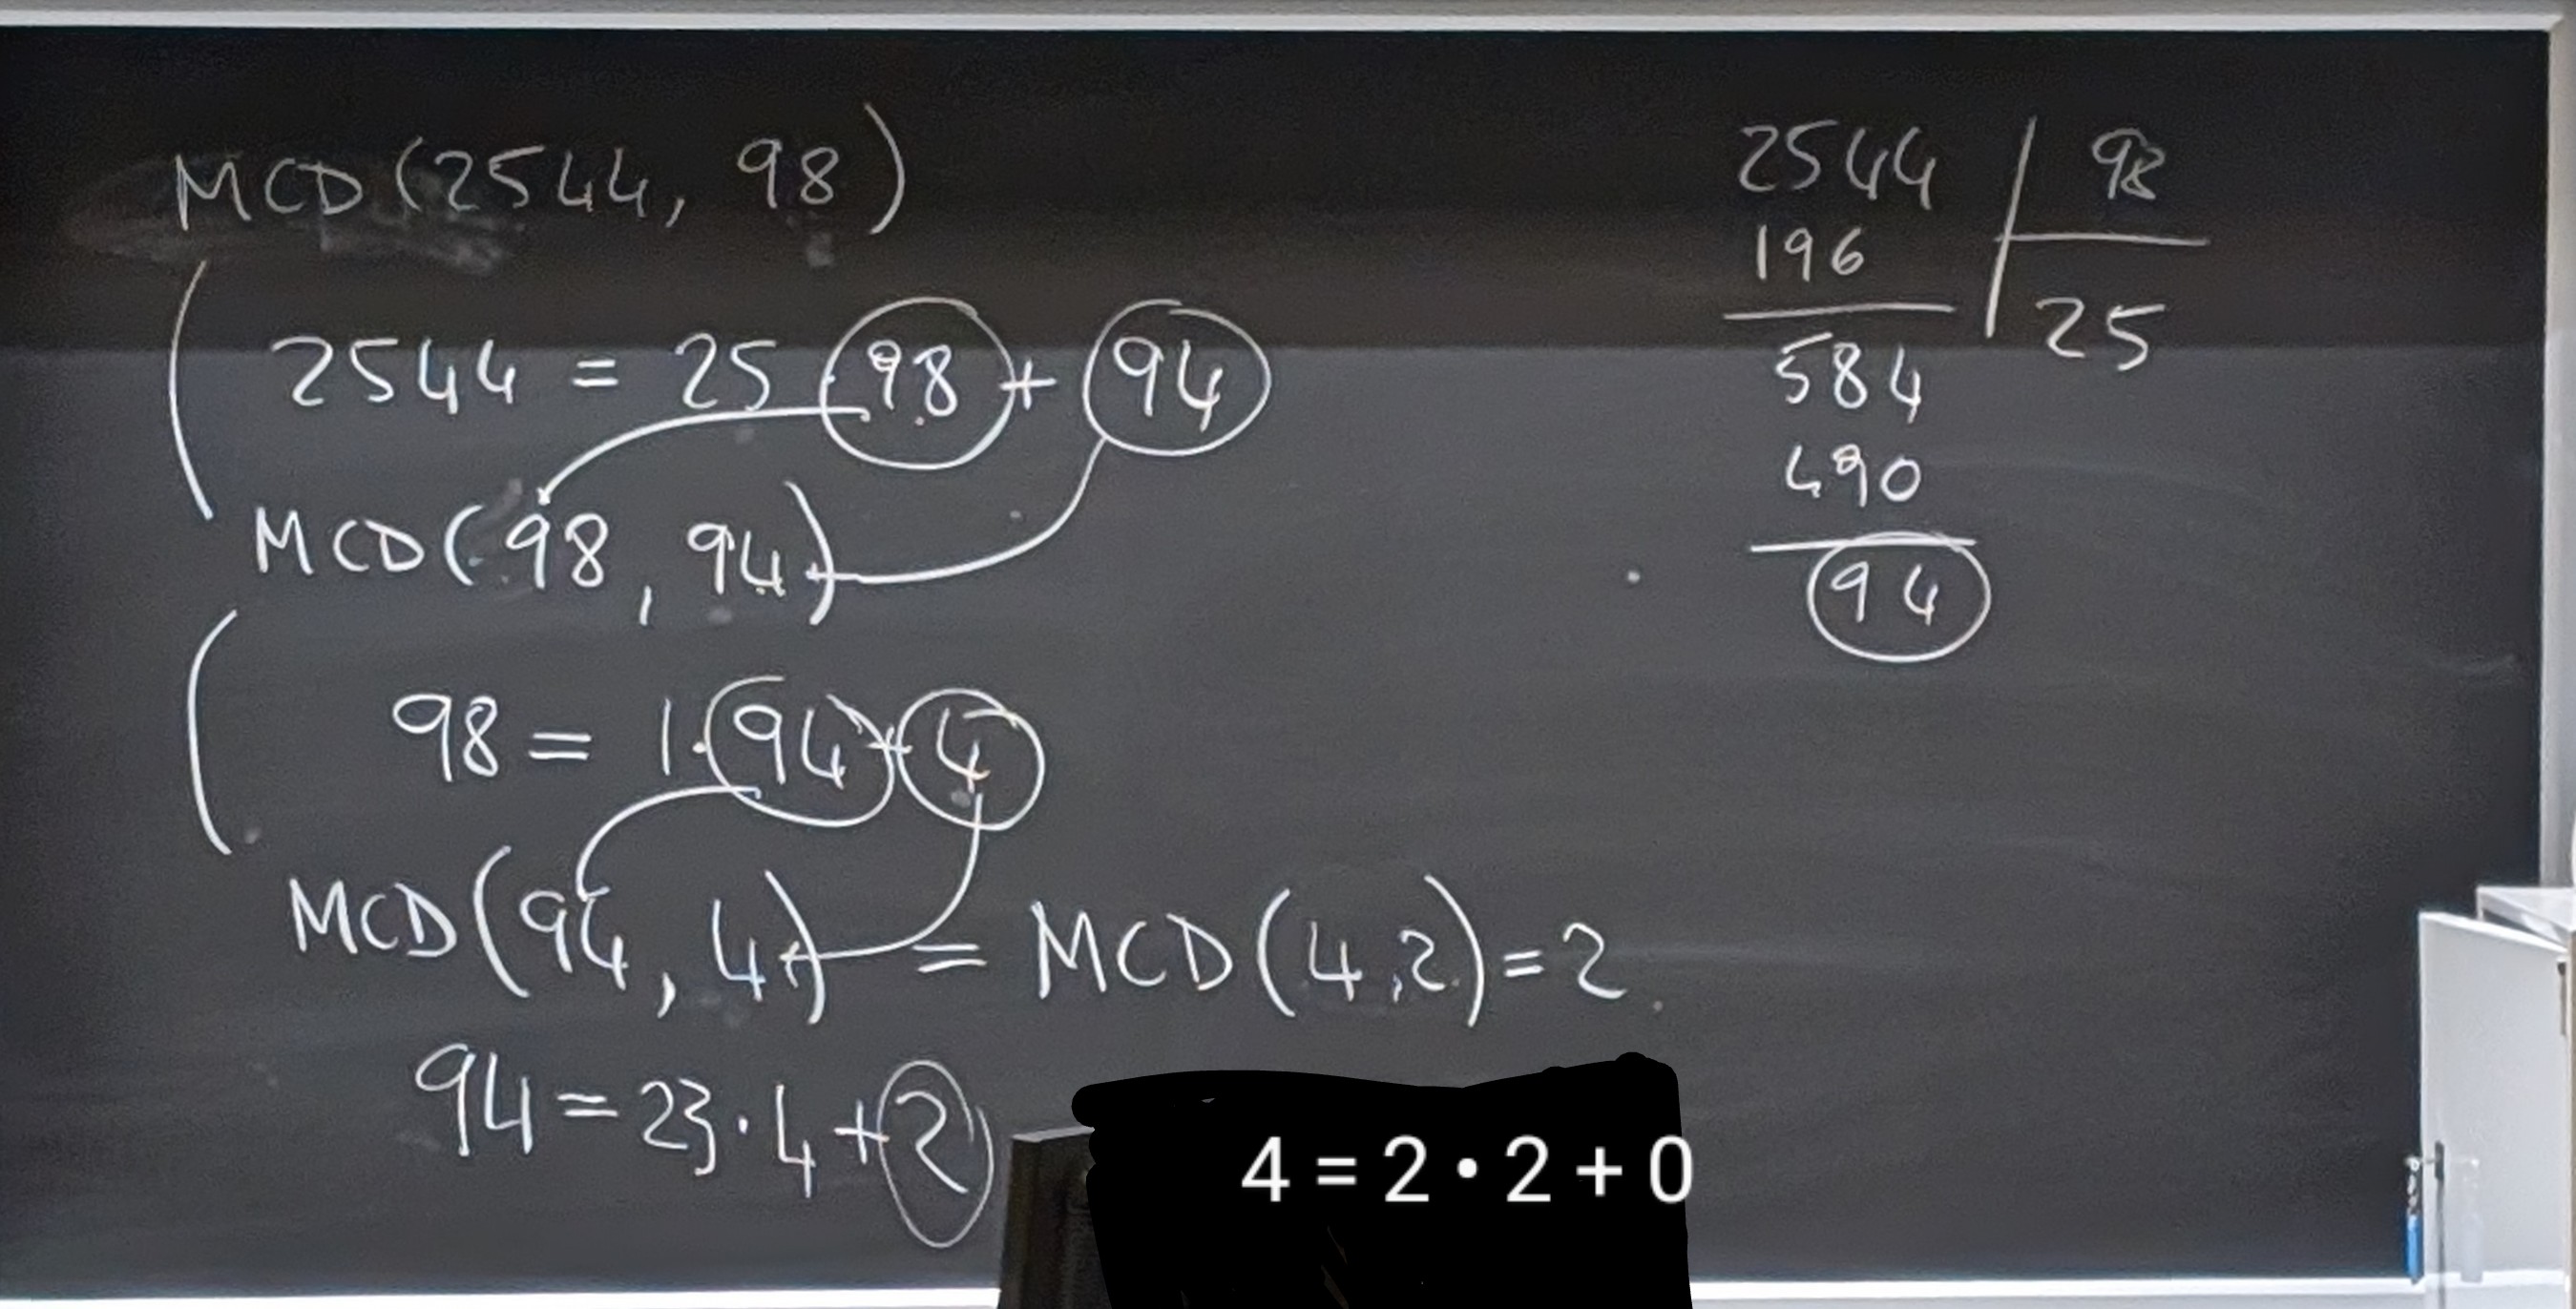 MCD(2544, 98)
2544 = 25 · 98 + 94
MCD(98, 94)
98 = 1·94+4
MCD(94, 4) = MCD(4,2)=2
94=23·4+2
4 = 2 • 2 + 0
2544 | 98
196
25
584
490
94